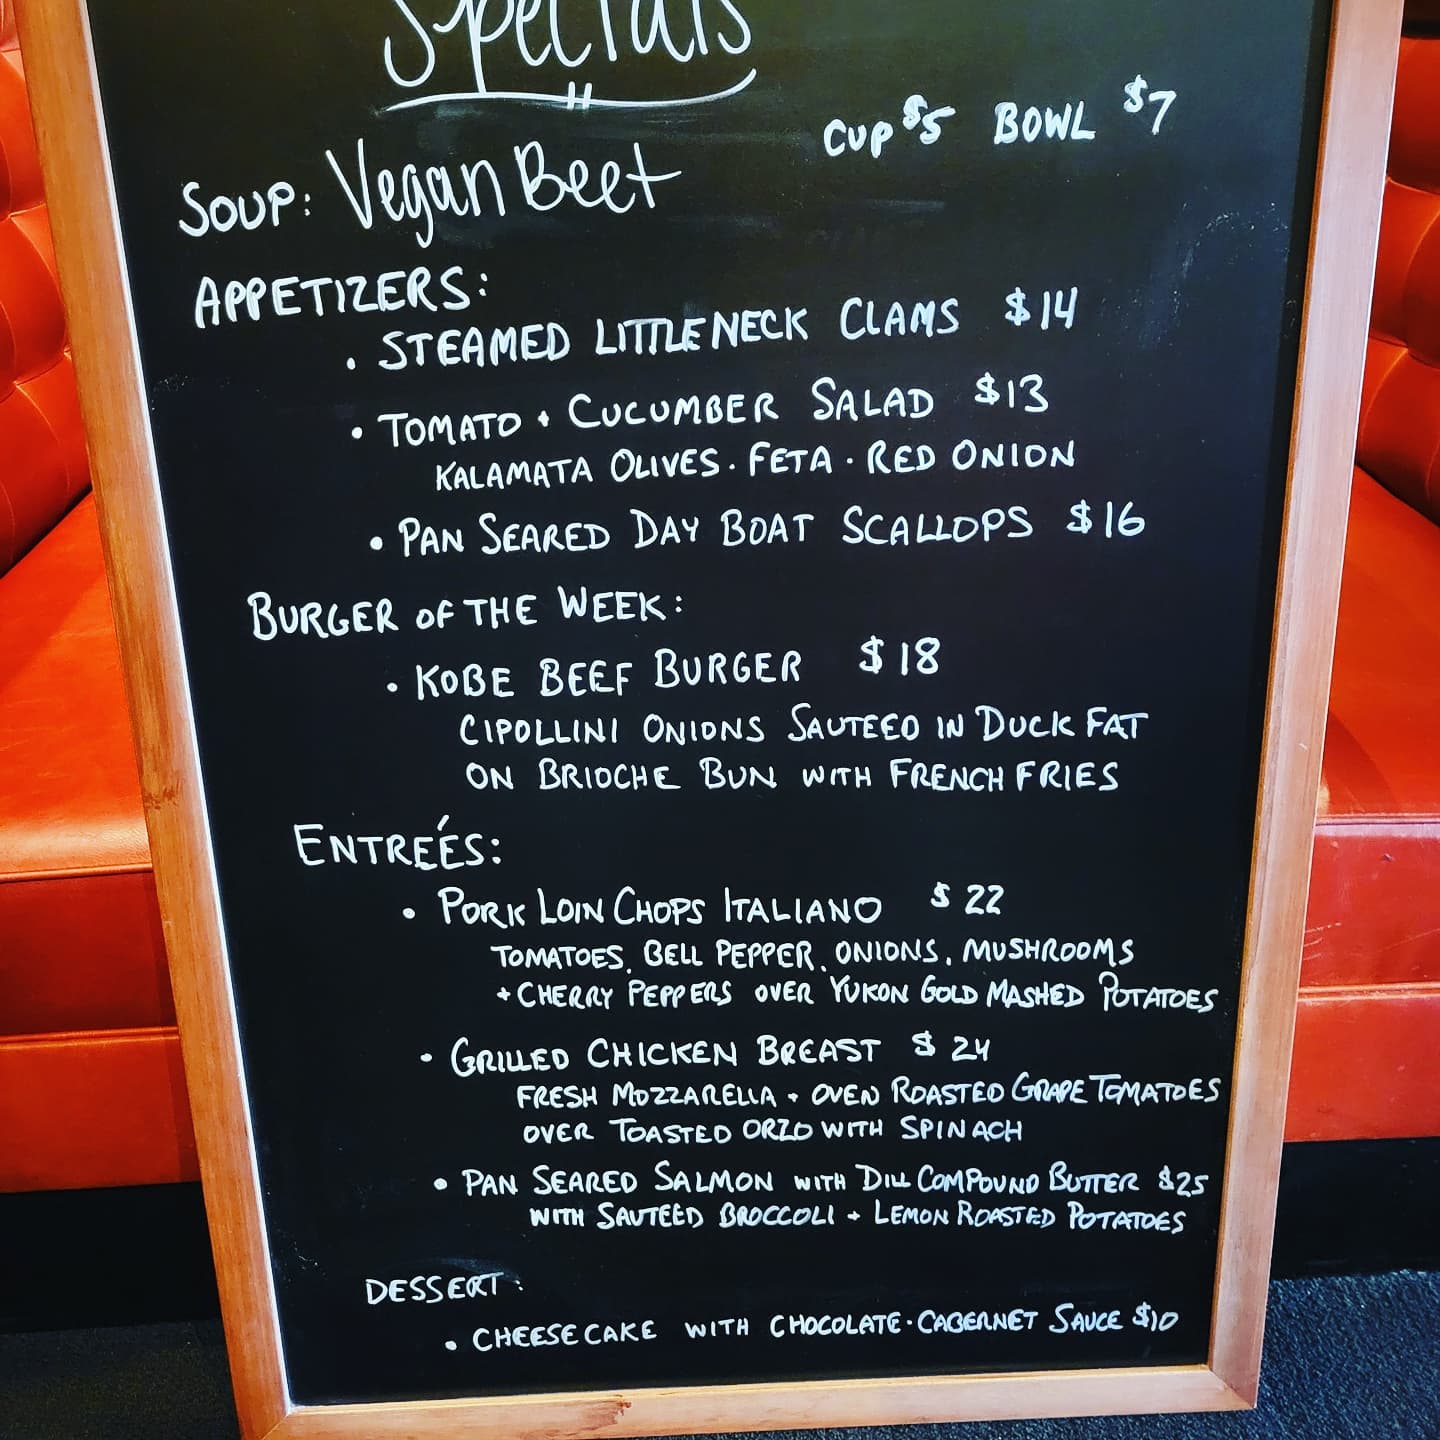 Specials
CUP $5 BOWL $7
SOUP: Vegan Beet
APPETIZERS:
• STEAMED LITTLENECK CLAMS $14
• TOMATO + CUCUMBER SALAD $13
KALAMATA OLIVES • FETA • RED ONION
• PAN SEARED DAY BOAT SCALLOPS $16
BURGER OF THE WEEK:
• KOBE BEEF BURGER $18
CIPOLLINI ONIONS SAUTEED IN DUCK FAT
ON BRIOCHE BUN WITH FRENCH FRIES
ENTREÉS:
• PORK LOIN CHOPS ITALIANO $22
TOMATOES, BELL PEPPER, ONIONS, MUSHROOMS
+ CHERRY PEPPERS OVER YUKON GOLD MASHED POTATOES
• GRILLED CHICKEN BREAST $24
FRESH MOZZARELLA + OVEN ROASTED GRAPE TOMATOES
OVER TOASTED ORZO WITH SPINACH
• PAN SEARED SALMON WITH DILL COMPOUND BUTTER $25
WITH SAUTEED BROCCOLI + LEMON ROASTED POTATOES
DESSERT:
• CHEESECAKE WITH CHOCOLATE • CABERNET SAUCE $10